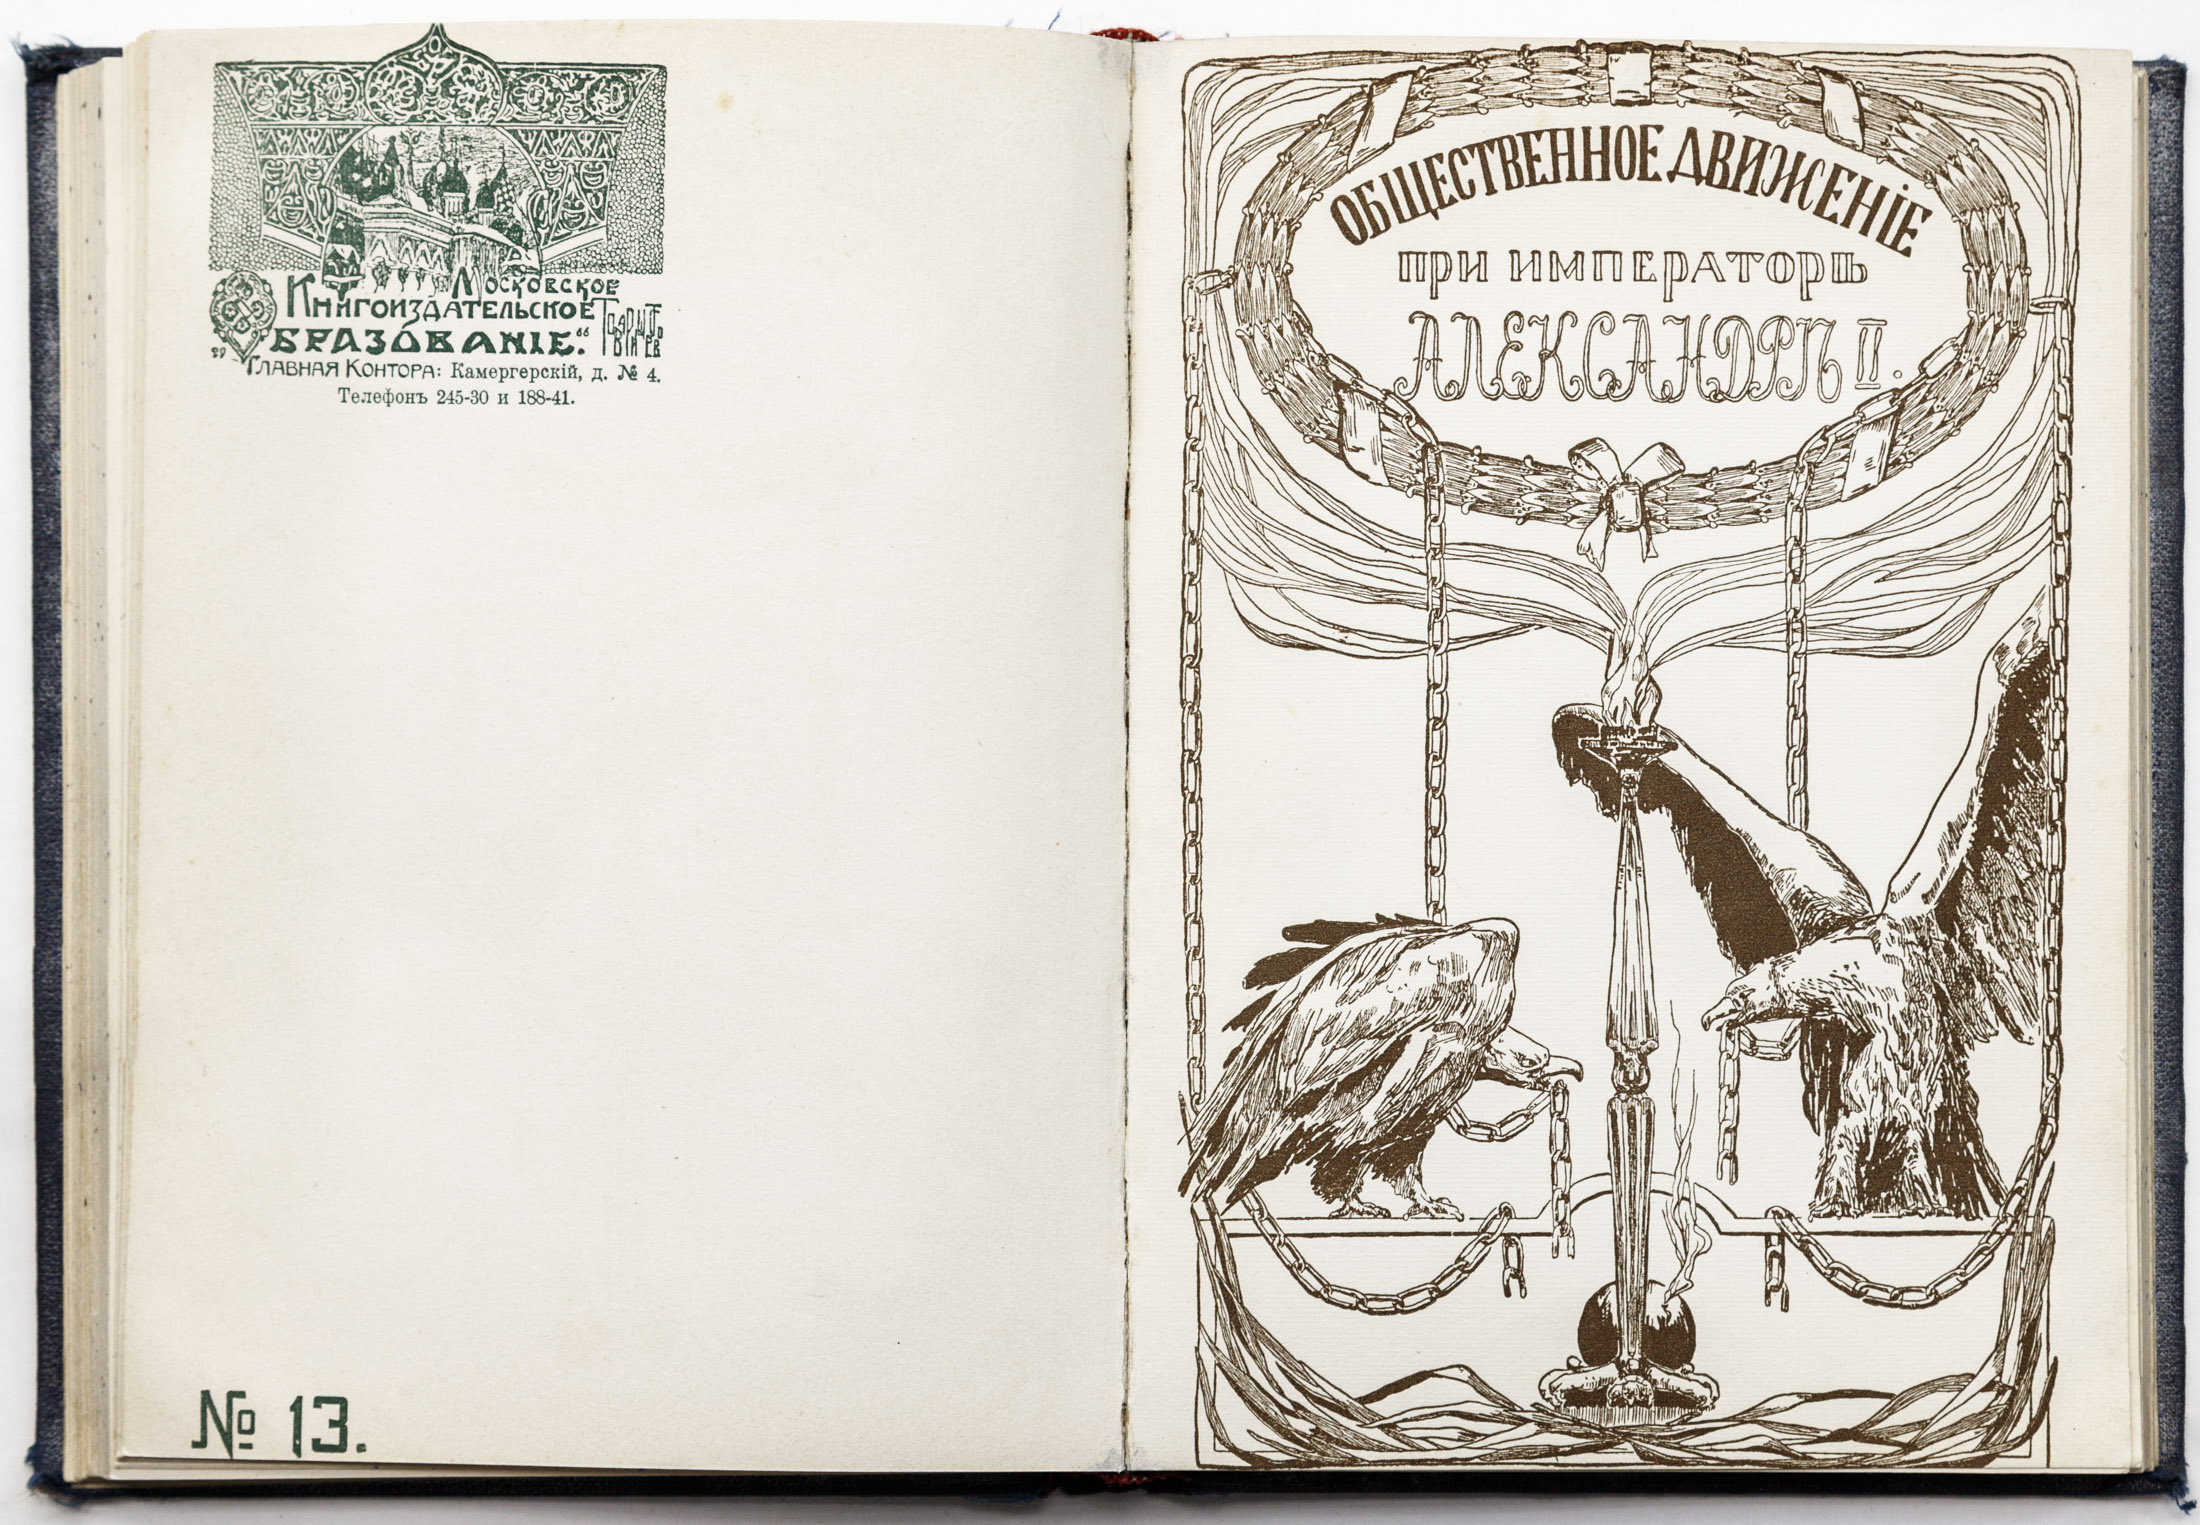 Московское
Книгоиздательское Товарищество
„Образованіе.“
Главная Контора: Камергерскій, д. № 4.
Телефонъ 245-30 и 188-41.
№ 13.
ОБЩЕСТВЕННОЕ ДВИЖЕНІЕ
ПРИ ИМПЕРАТОРѢ
АЛЕКСАНДРѢ II.